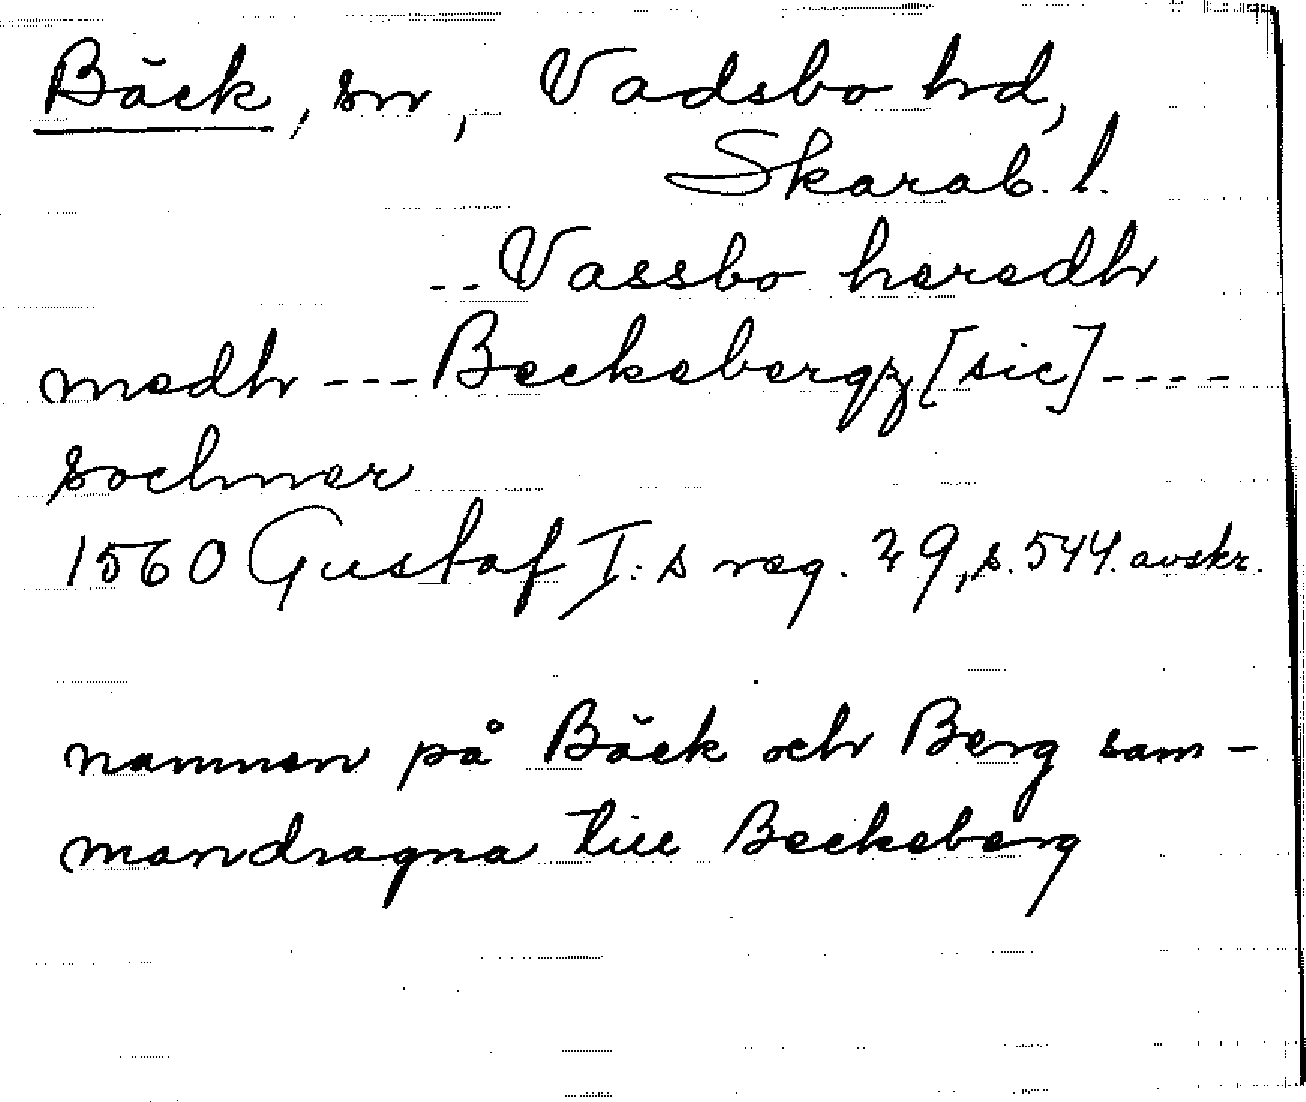 Bäck, sn, Vadsbo hd,
Skarab. l.
-- Vassbo heredh
medh --- Beckebergz [sic] ----
sochner
1560 Gustaf I:s reg. 29, s. 544. avskr.
namnen på Bäck och Berg sam-
mandragna till Beckeberg